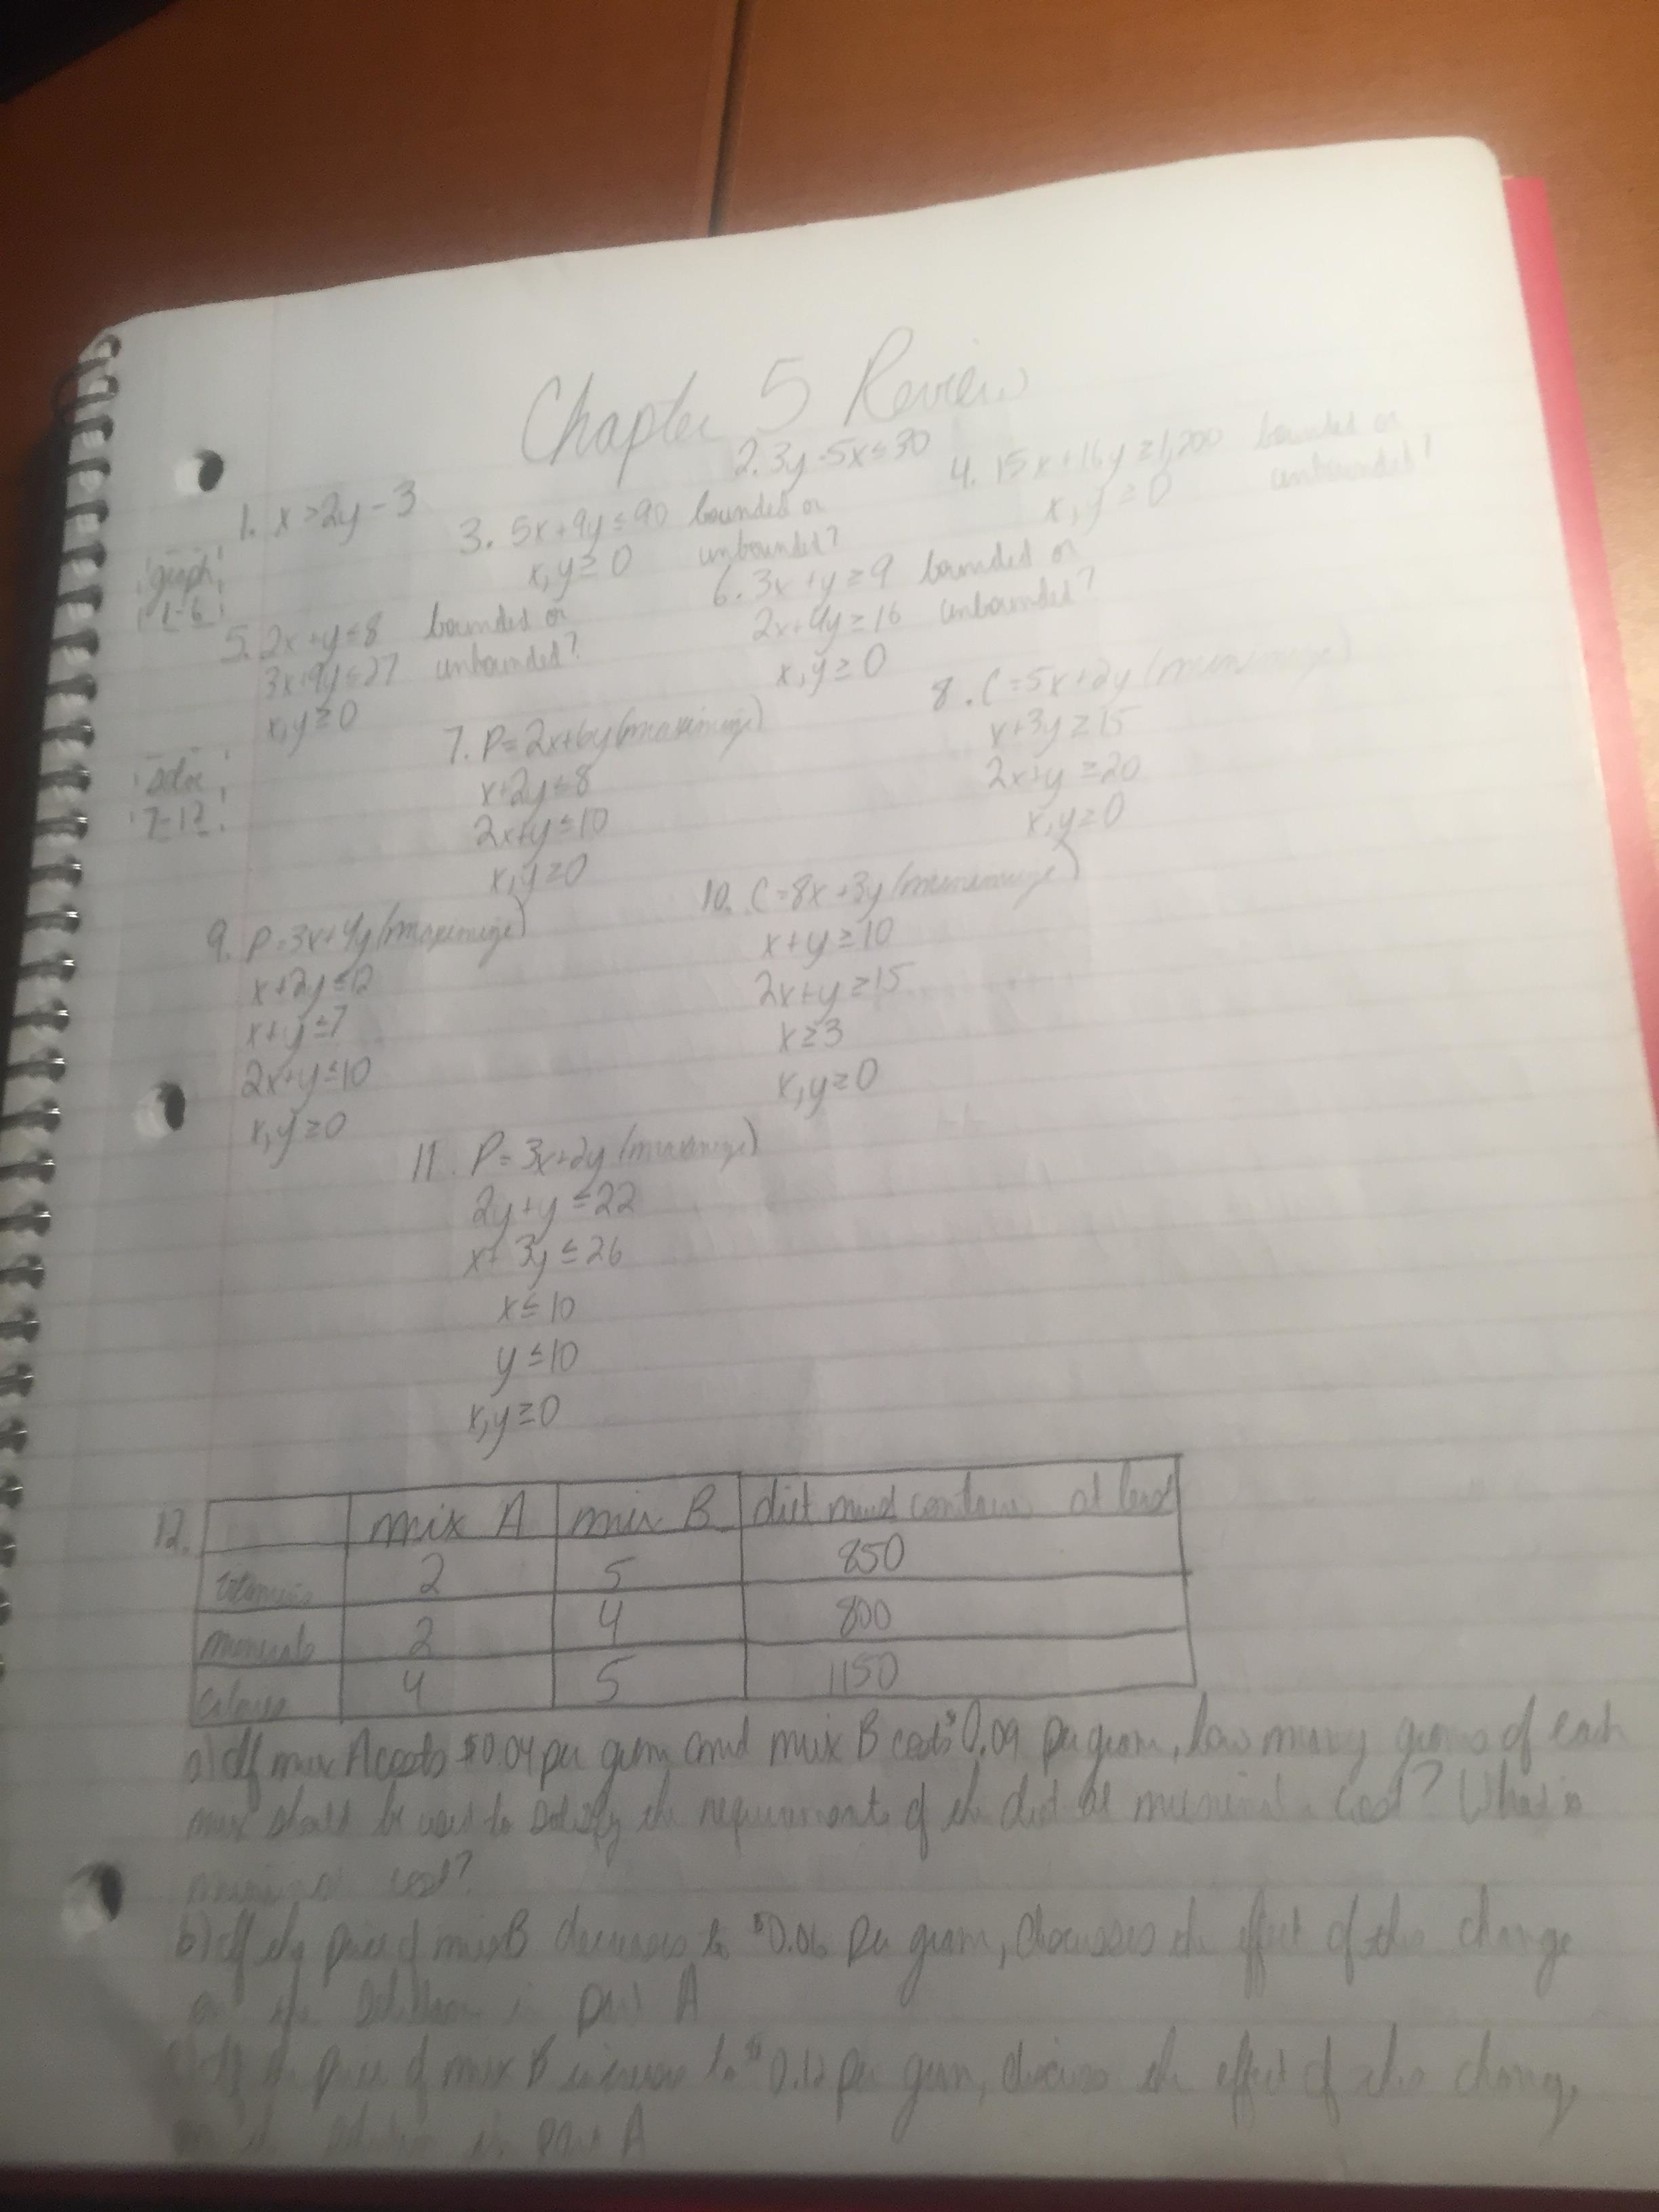 Chapter 5 Review
1. x > 2y - 3
2. 3y - 5x ≤ 30
graph
1-6
3. 5x + 9y ≤ 90 bounded or
x, y ≥ 0 unbounded?
4. 15x + 16y ≥ 1,200 bounded or
x, y ≥ 0 unbounded?
5. 2x + y ≤ 8 bounded or
3x + 9y ≤ 27 unbounded?
x, y ≥ 0
6. 3x + y ≥ 9 bounded or
2x + 4y ≥ 16 unbounded?
x, y ≥ 0
solve
7-12
7. P = 2x + 6y (maximize)
x + 2y ≤ 8
2x + y ≤ 10
x, y ≥ 0
8. C = 5x + 2y (minimize)
x + 3y ≥ 15
2x + y ≥ 20
x, y ≥ 0
9. P = 3x + 4y (maximize)
x + 2y ≤ 12
x + y ≤ 7
2x + y ≤ 10
x, y ≥ 0
10. C = 8x + 3y (minimize)
x + y ≥ 10
2x + y ≥ 15
x ≥ 3
x, y ≥ 0
11. P = 3x + 2y (maximize)
2y + y ≤ 22
x + 3y ≤ 26
x ≤ 10
y ≤ 10
x, y ≥ 0
12. mix A mix B diet must contain at least
vitamins 2 5 850
minerals 2 4 800
calories 4 5 1150
a) If mix A costs $0.04 per gram and mix B costs $0.09 per gram, how many grams of each
mix should be used to satisfy the requirements of the diet at minimal cost? What is
minimal cost?
b) If the price of mix B decreases to $0.06 per gram, discusses the effect of this change
on the solution in part A
c) If the price of mix B increase to $0.12 per gram, discuss the effect of this change
on the solution in part A